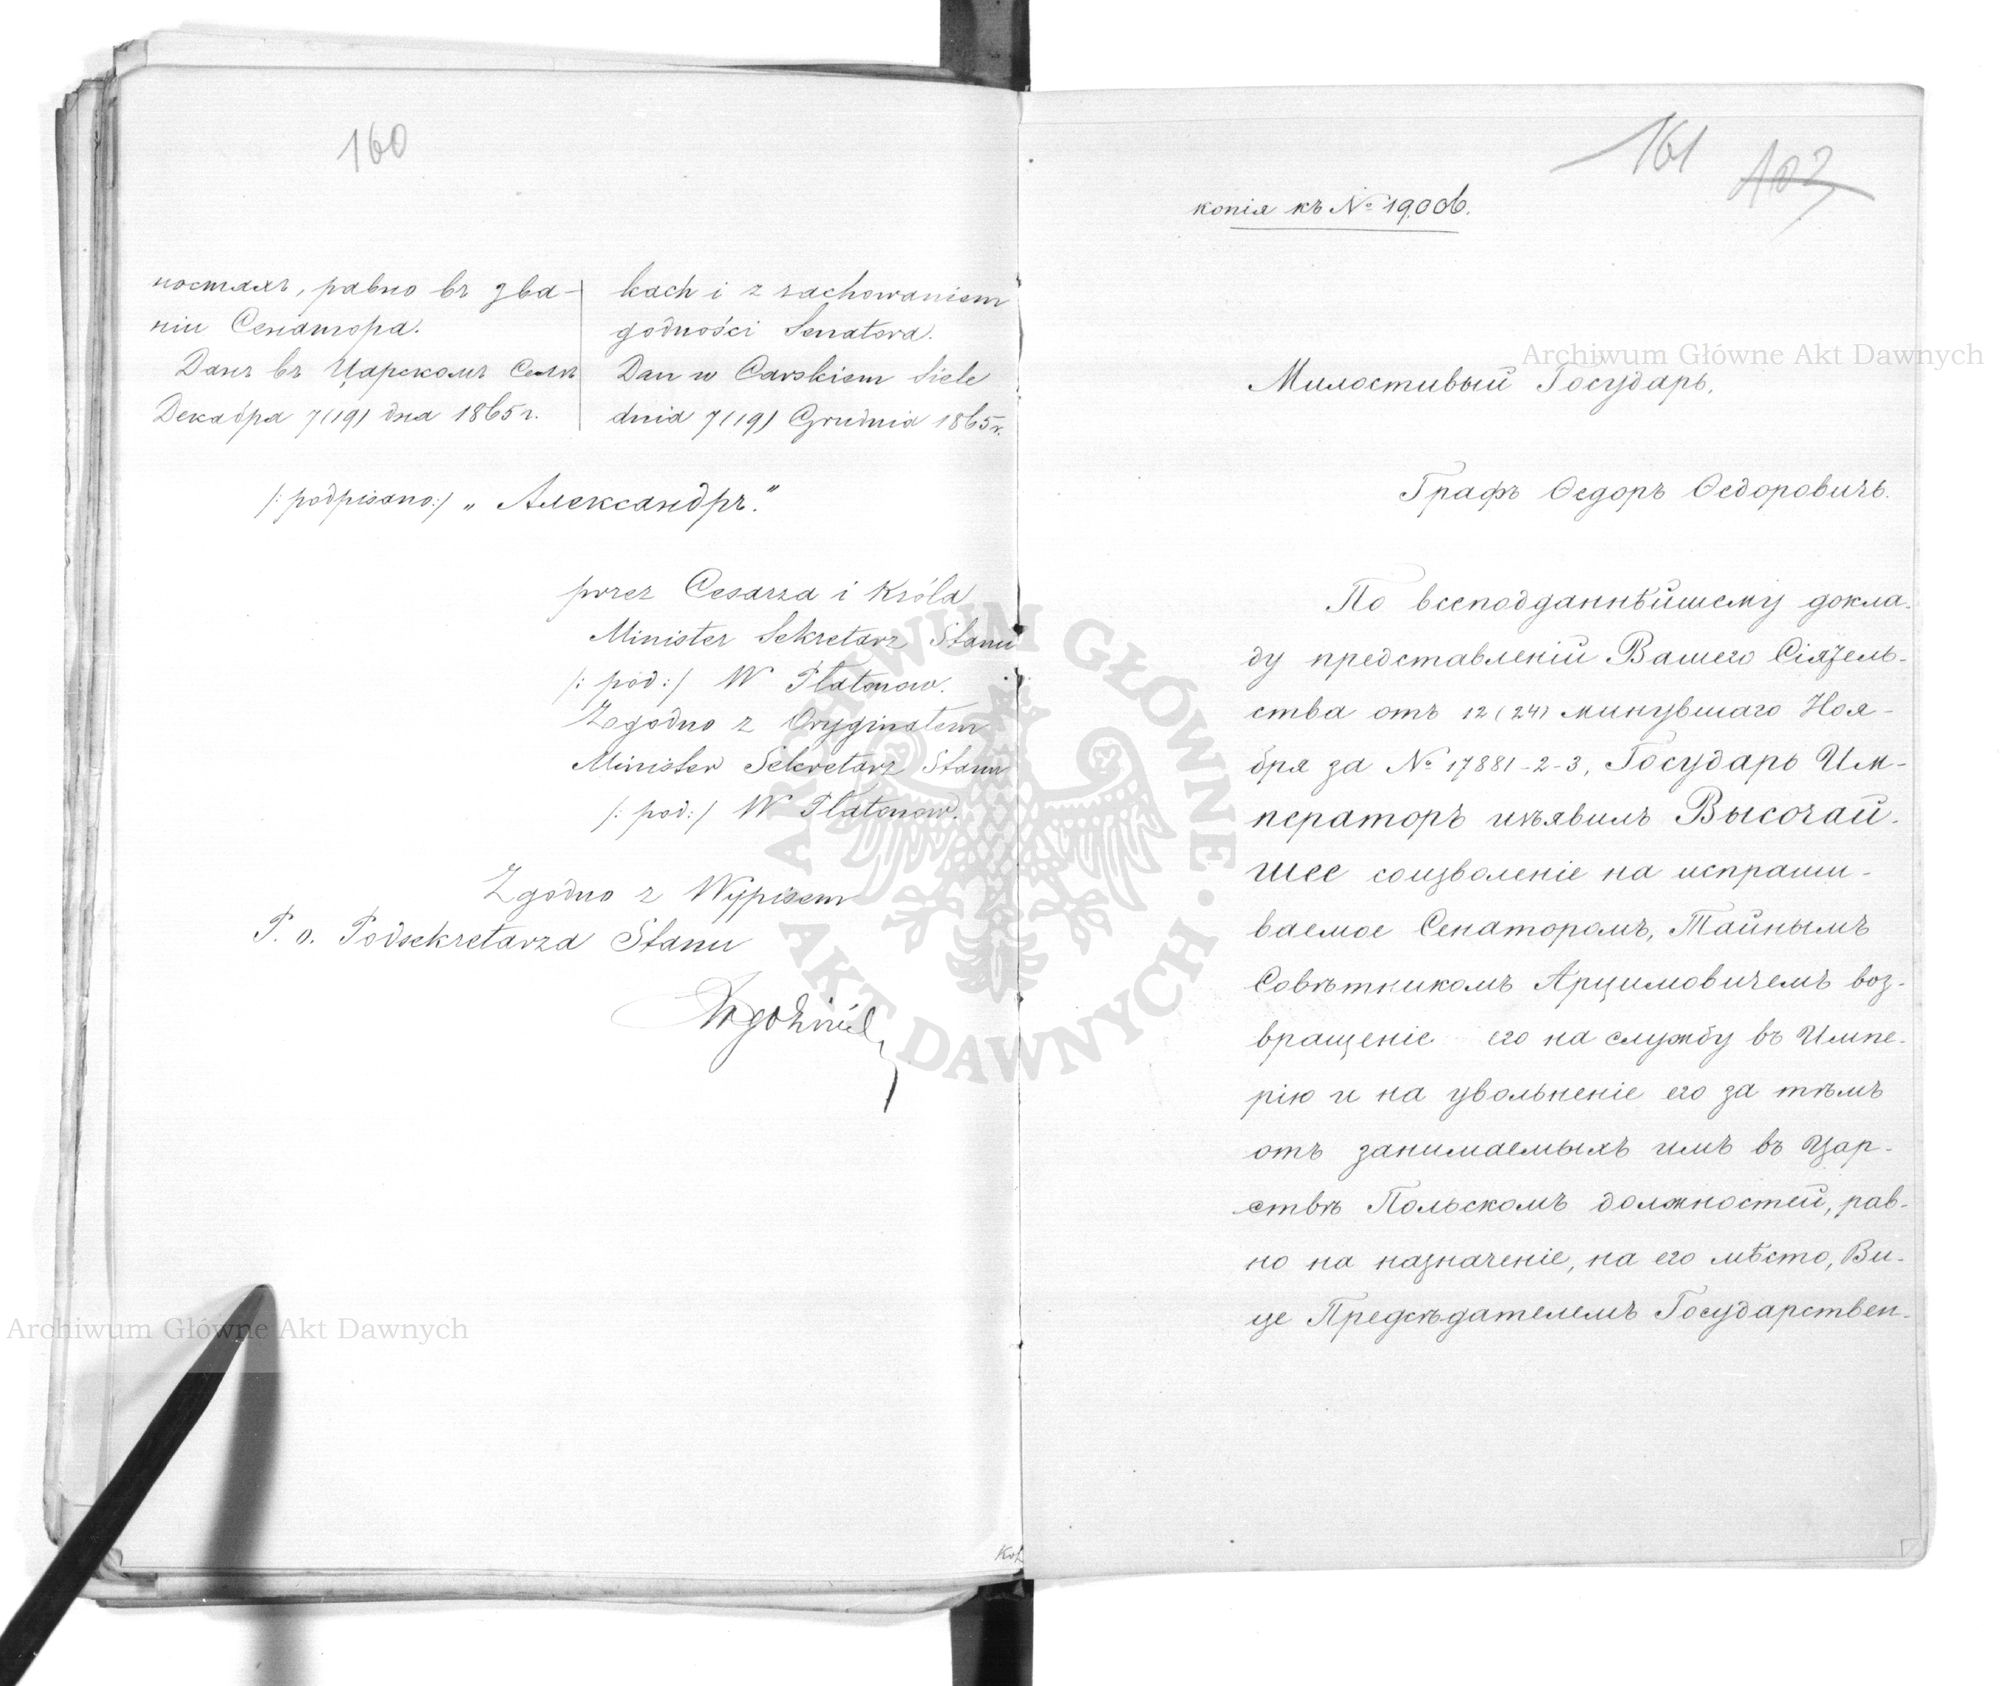 160
ностяхъ, равно въ зва-
ніи Сенатора.
Данъ въ Царскомъ Селѣ
Декабря 7(19) дня 1865 г.
kach i z zachowaniem
godności Senatora.
Dan w Carskiem Siele
dnia 7(19) Grudnia 1865 r.
/: podpisano :/ „Александръ."
przez Cesarza i Króla
Minister Sekretarz Stanu
/: pod: / W Płatonow.
Zgodno z Oryginałem
Minister Sekretarz Stanu
/: pod: / W Płatonow.
Zgodno z Wypisem
P. o. Podsekretarza Stanu
161
103
копія къ № 19,006.
Милостивый Государь,
Графъ Ѳедоръ Ѳедоровичъ.
По всеподданнѣйшему докла-
ду представленій Вашего Сіятель-
ства отъ 12 (24) минувшаго Ноя-
бря за № 17881-2-3, Государь Им-
ператоръ изъявилъ Высочай-
шее соизволеніе на испраши-
ваемое Сенаторомъ, Тайнымъ
Совѣтникомъ Арцимовичемъ воз-
вращеніе его на службу въ Импе-
рію и на увольненіе его за тѣмъ
отъ занимаемыхъ имъ въ Цар-
ствѣ Польскомъ должностей, рав-
но на назначеніе, на его мѣсто, Ви-
це Предсѣдателемъ Государствен-
Archiwum Główne Akt Dawnych
Archiwum Główne Akt Dawnych
ARCHIWUM GŁÓWNE · AKT DAWNYCH ·